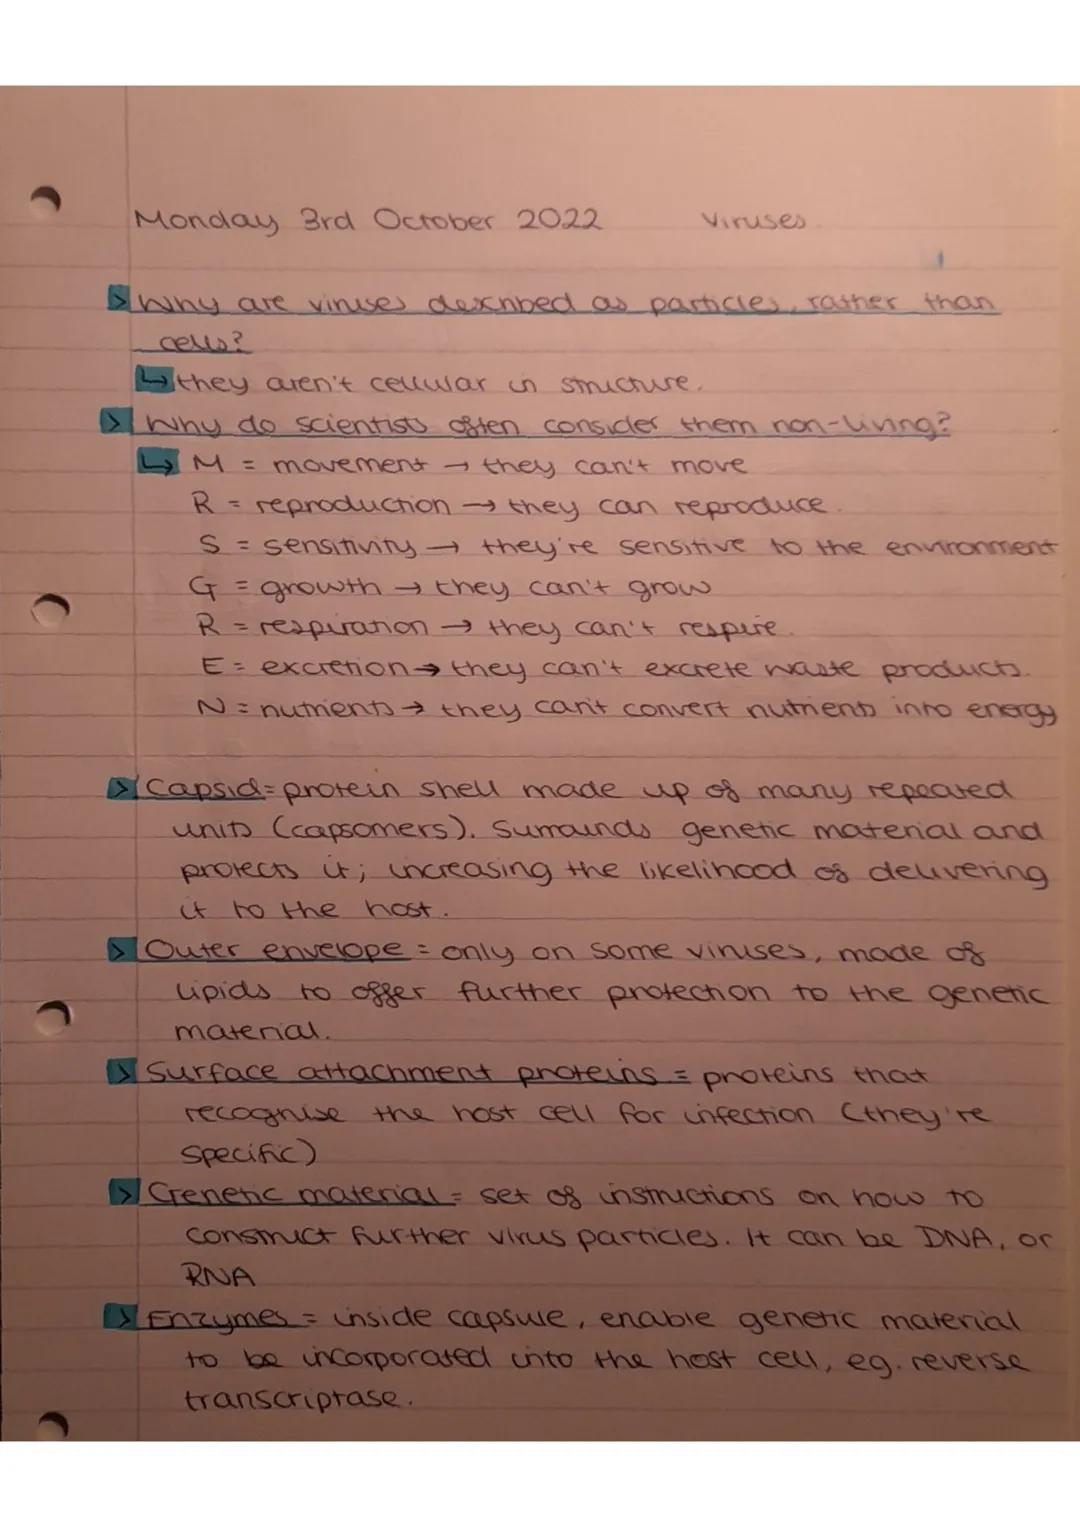 Monday 3rd October 2022 Viruses
> Why are viruses described as particles, rather than
cells?
↳ they aren't cellular in structure.
> Why do scientists often consider them non-living?
↳ M = movement → they can't move
R = reproduction → they can reproduce.
S = sensitivity → they're sensitive to the environment
G = growth → they can't grow
R = respiration → they can't respire.
E = excretion → they can't excrete waste products.
N = nutrients → they can't convert nutrients into energy
> Capsid = protein shell made up of many repeated
units (capsomers). Surrounds genetic material and
protects it; increasing the likelihood of delivering
it to the host.
> Outer envelope = only on some viruses, made of
lipids to offer further protection to the genetic
material.
> Surface attachment proteins = proteins that
recognise the host cell for infection (they're
specific)
> Genetic material = set of instructions on how to
construct further virus particles. It can be DNA, or
RNA
> Enzymes = inside capsule, enable genetic material
to be incorporated into the host cell, eg. reverse
transcriptase.